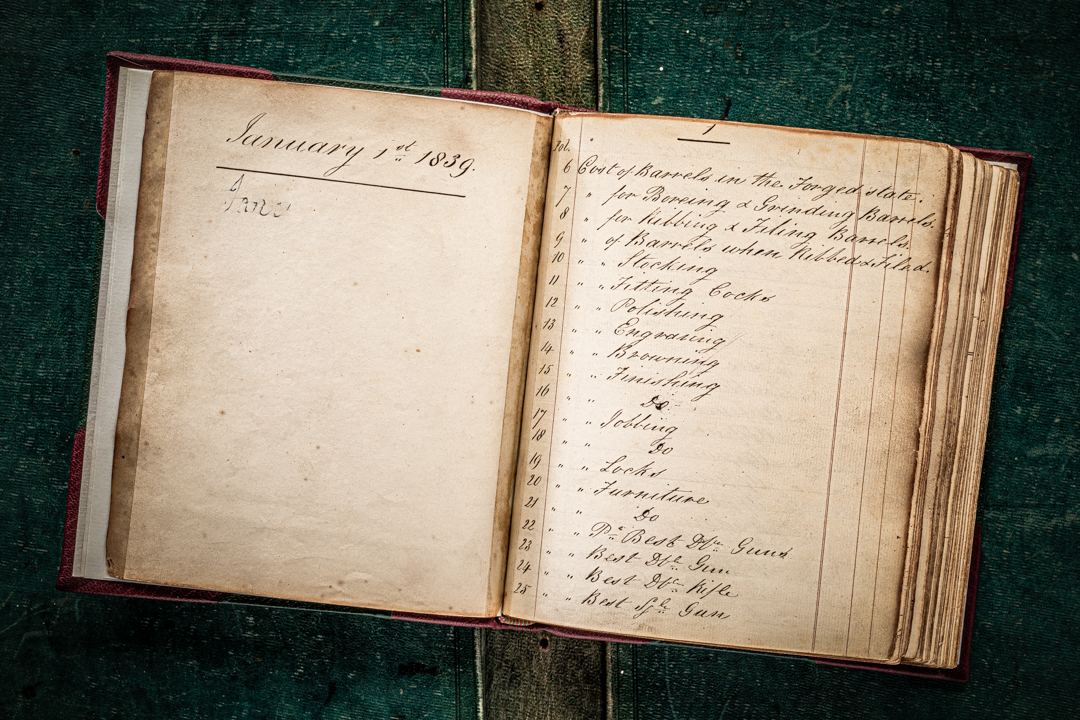 January 1st 1839.
Jany
1
Fol. "
6 Cost of Barrels in the Forged state.
7 " for Boreing & Grinding Barrels.
8 " for Ribbing & Filing Barrels.
9 " of Barrels when Ribbed & Filed.
10 " " Stocking
11 " " Fitting Cocks
12 " " Polishing
13 " " Engraving
14 " " Browning
15 " " Finishing
16 " " Do
17 " " Jobbing
18 " " Do
19 " " Locks
20 " " Furniture
21 " " Do
22 " " Pr Best Dble Guns
23 " " Best Dble Gun
24 " " Best Dble Rifle
25 " " Best Sgle Gun